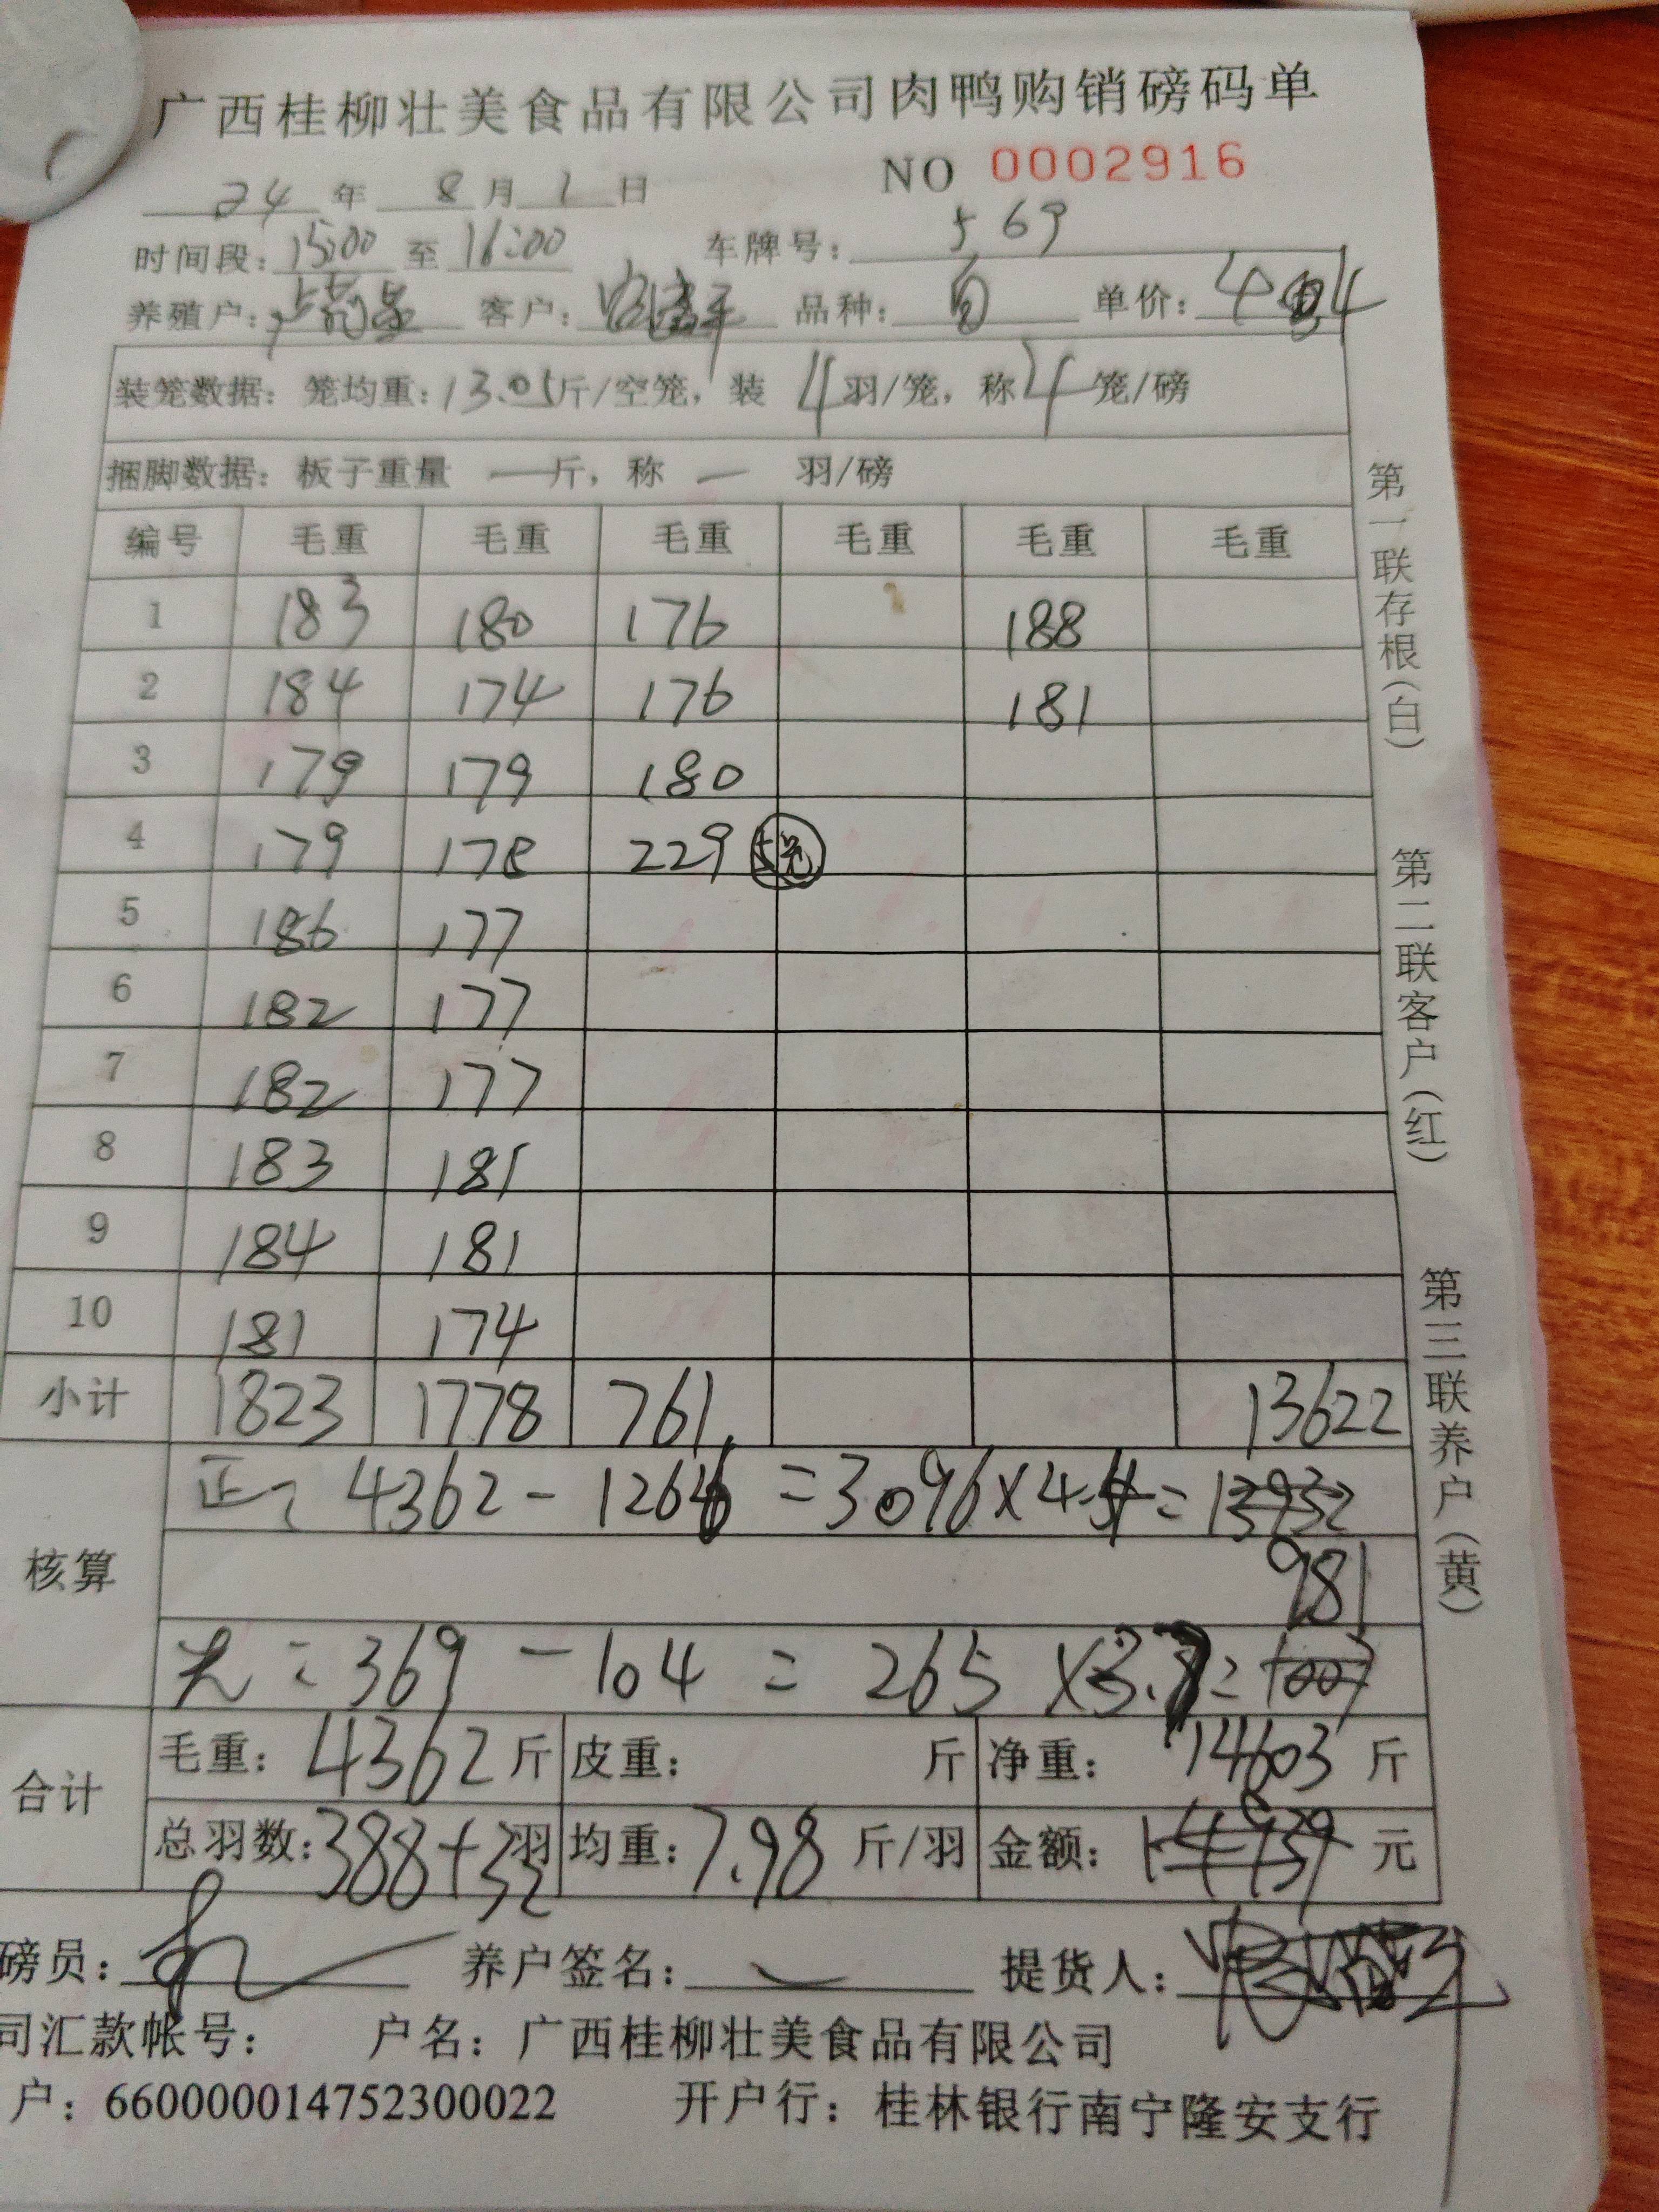 广西桂柳壮美食品有限公司肉鸭购销磅码单
NO 0002916
24 年 8 月 1 日
时间段: 15:00 至 16:00 车牌号: 569
养殖户: 客户: 品种: 单价:
装笼数据: 笼均重: 13.05 斤/空笼, 装 4 羽/笼, 称 4 笼/磅
捆脚数据: 板子重量 — 斤, 称 — 羽/磅
编号 毛重 毛重 毛重 毛重 毛重 毛重
1 183 180 176 188
2 184 174 176 181
3 179 179 180
4 179 178 229
5 186 177
6 182 177
7 182 177
8 183 181
9 184 181
10 181 174
小计 1823 1778 761 13622
核算
正: 4362 - 1266 = 3096 × 4.4 = 13932
981
光: 369 - 104 = 265 × 3.7 = 1007
合计
毛重: 4362 斤 皮重: 斤 净重: 14603 斤
总羽数: 388+32 羽 均重: 7.98 斤/羽 金额: 14939 元
磅员: 养户签名: 提货人:
司汇款帐号: 户名: 广西桂柳壮美食品有限公司
户: 660000014752300022 开户行: 桂林银行南宁隆安支行
第一联存根(白)
第二联客户(红)
第三联养户(黄)